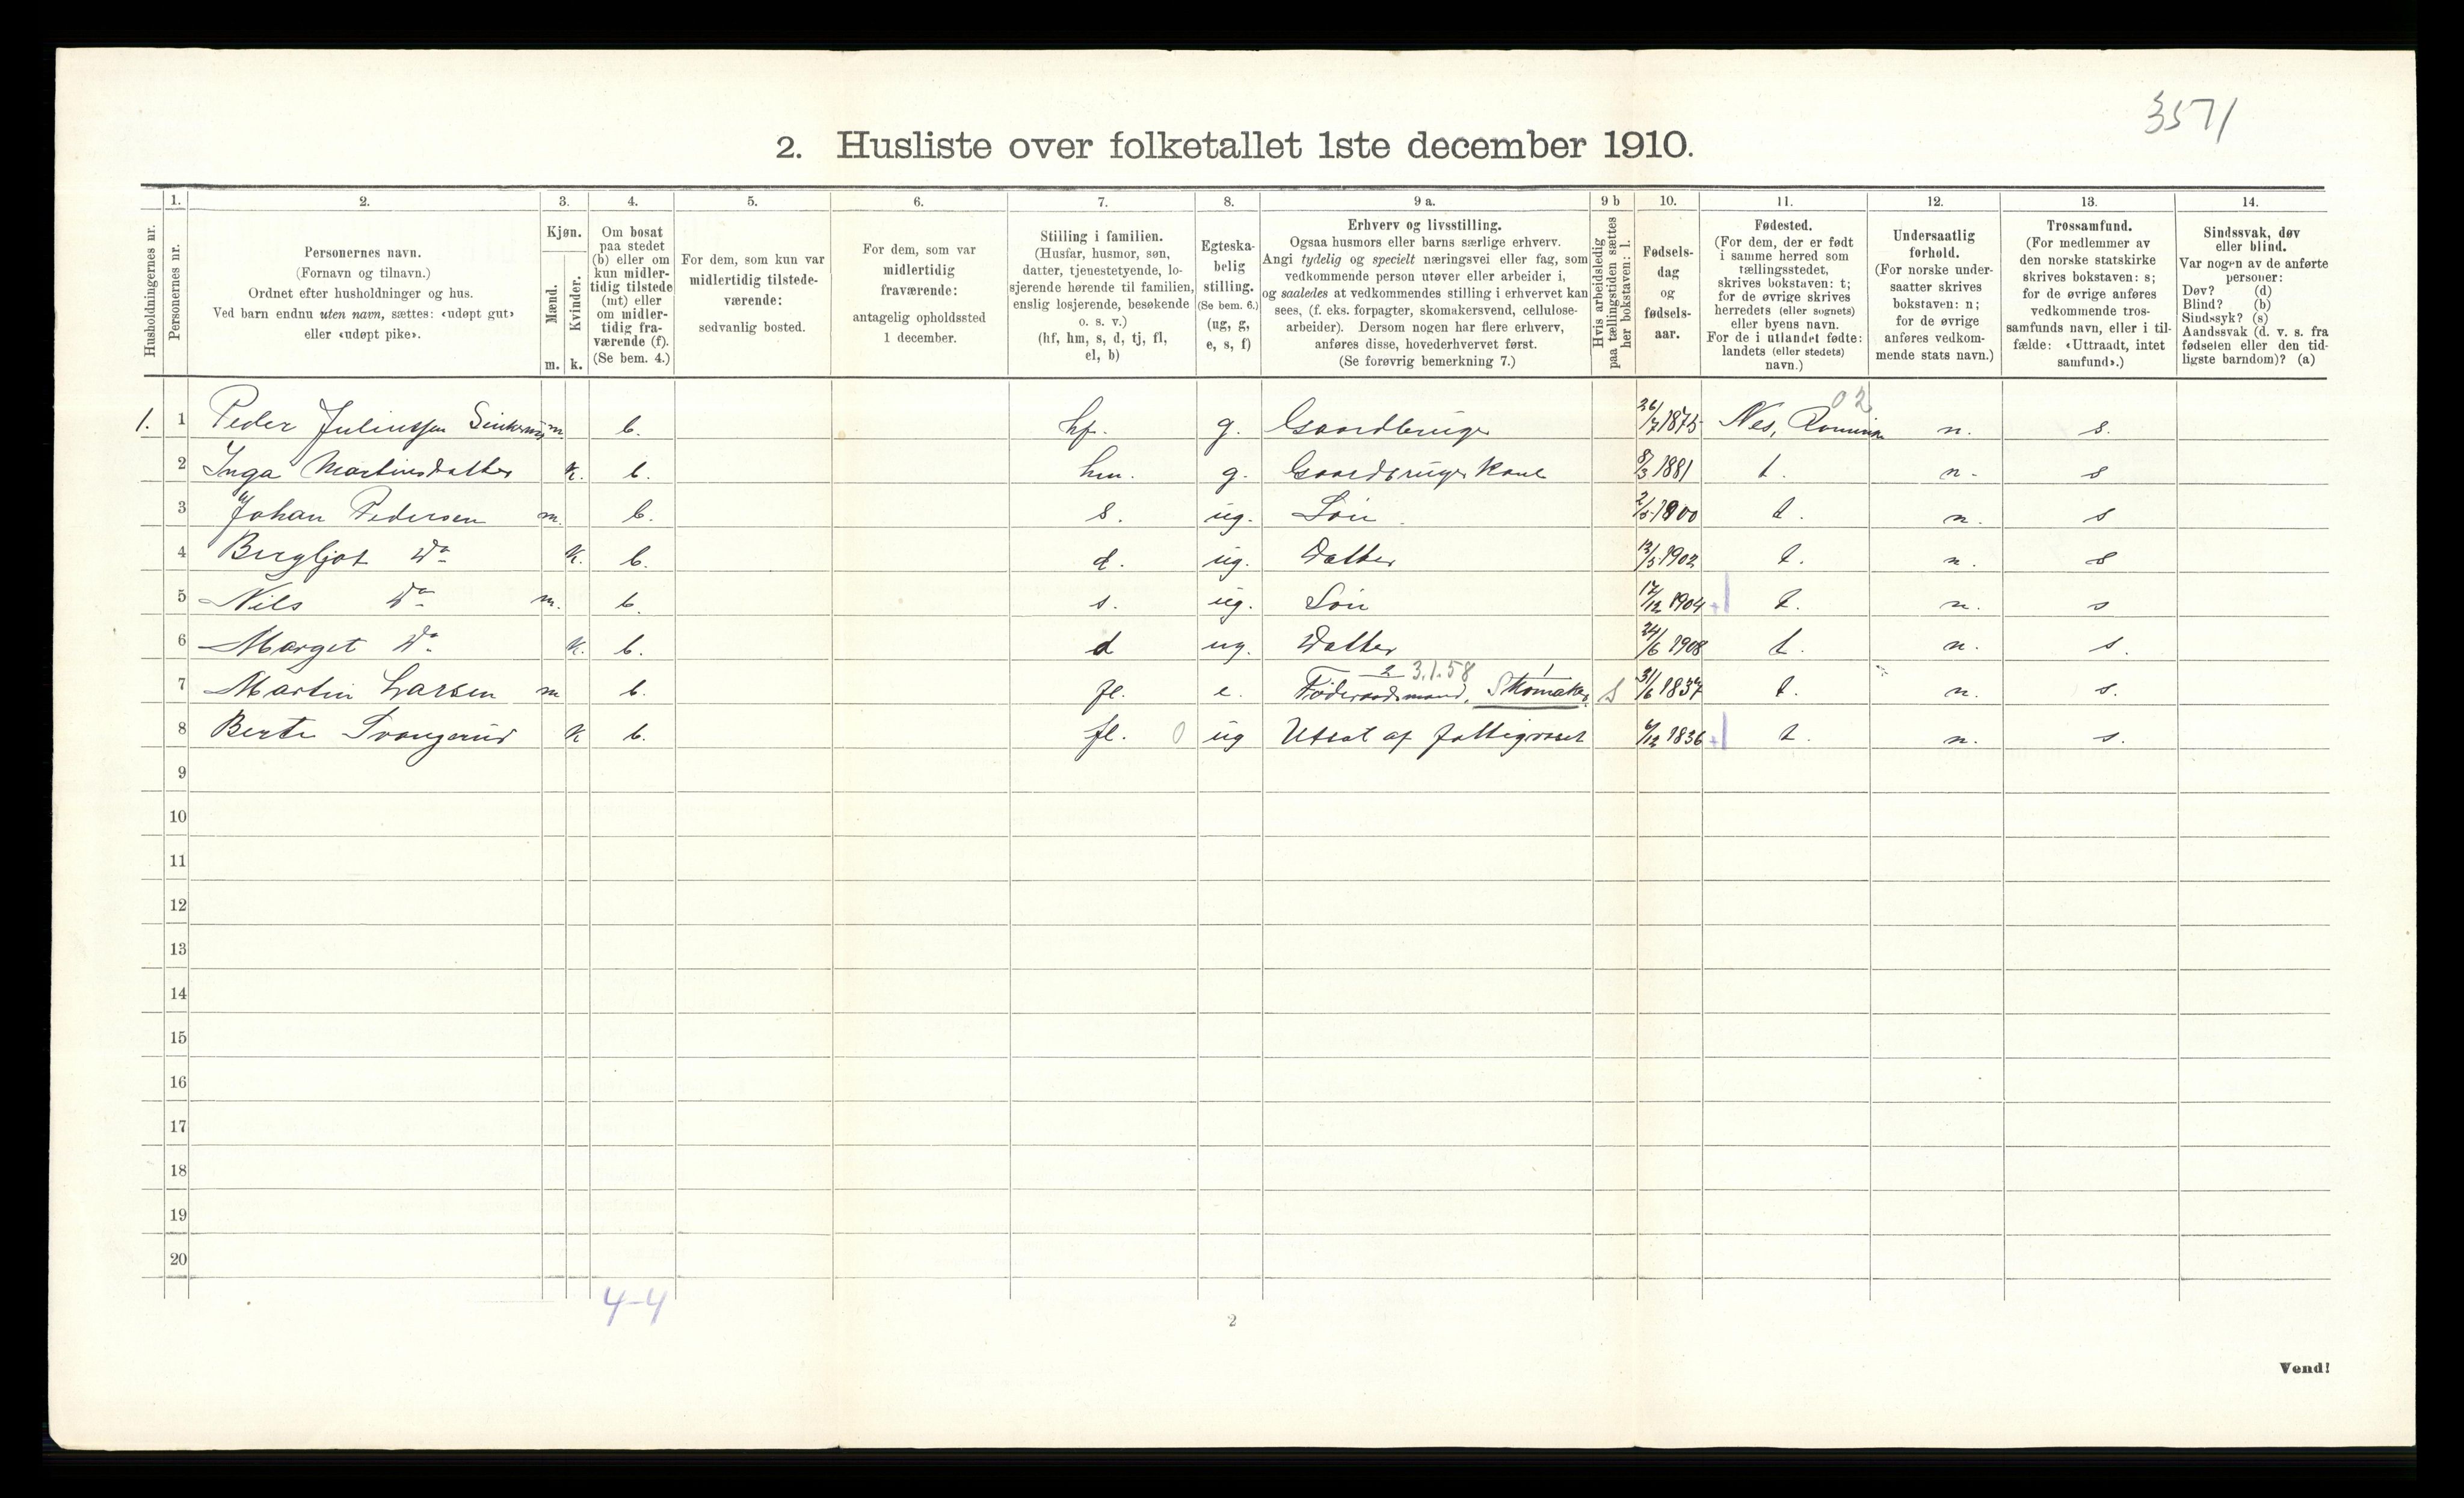 3571
2. Husliste over folketallet 1ste december 1910.
Husholdningernes nr.
1.
Personernes nr.
2.
Personernes navn.
(Fornavn og tilnavn.)
Ordnet efter husholdninger og hus.
Ved barn endnu uten navn, sættes: «udøpt gut»
eller «udøpt pike».
3.
Kjøn.
Mænd.
Kvinder.
m. k.
4.
Om bosat
paa stedet
(b) eller om
kun midler-
tidig tilstede
(mt) eller
om midler-
tidig fra-
værende (f).
(Se bem. 4.)
5.
For dem, som kun var
midlertidig tilstede-
værende:
sedvanlig bosted.
6.
For dem, som var
midlertidig
fraværende:
antagelig opholdssted
1 december.
7.
Stilling i familien.
(Husfar, husmor, søn,
datter, tjenestetyende, lo-
sjerende hørende til familien,
enslig losjerende, besøkende
o. s. v.)
(hf, hm, s, d, tj, fl,
el, b)
8.
Egteska-
belig
stilling.
(Se bem. 6.)
(ug, g,
e, s, f)
9 a.
Erhverv og livsstilling.
Ogsaa husmors eller barns særlige erhverv.
Angi tydelig og specielt næringsvei eller fag, som
vedkommende person utøver eller arbeider i,
og saaledes at vedkommendes stilling i erhvervet kan
sees, (f. eks. forpagter, skomakersvend, cellulose-
arbeider). Dersom nogen har flere erhverv,
anføres disse, hovederhvervet først.
(Se forøvrig bemerkning 7.)
9 b
Hvis arbeidsledig
paa tællingstiden sættes
her bokstaven: l.
10.
Fødsels-
dag
og
fødsels-
aar.
11.
Fødested.
(For dem, der er født
i samme herred som
tællingsstedet,
skrives bokstaven: t;
for de øvrige skrives
herredets (eller sognets)
eller byens navn.
For de i utlandet fødte:
landets (eller stedets)
navn.)
12.
Undersaatlig
forhold.
(For norske under-
saatter skrives
bokstaven: n;
for de øvrige
anføres vedkom-
mende stats navn.)
13.
Trossamfund.
(For medlemmer av
den norske statskirke
skrives bokstaven: s;
for de øvrige anføres
vedkommende tros-
samfunds navn, eller i til-
fælde: «Uttraadt, intet
samfund».)
14.
Sindssvak, døv
eller blind.
Var nogen av de anførte
personer:
Døv? (d)
Blind? (b)
Sindssyk? (s)
Aandssvak (d. v. s. fra
fødselen eller den tid-
ligste barndom)? (a)
02
1. 1 Peder Juliussen m. b. hf. g. Gaardbruger 26/7 1875 Nes, n. s.
2 Inga Martinsdatter k. b. hm. g. Gaardbruger Kone 8/3 1881 t. n. s
3 Johan Pedersen m. b. s. ug. Søn 2/5 1900 t. n. s
4 Bergljot Do k. b. d. ug. Datter 12/5 1902 t. n. s
5 Nils Do m. b. s. ug. Søn 17/12 1904 t. n. s
6 Marget Do k. b. d ug. Datter 24/6 1908 t. n. s.
2 3.1.58 1
7 Martin Larsen m b. fl. e. Føderaadsmand, Skomaker. s 31/6 1837 t. n. s.
8 Berte k b. fl. 0 ug Utsat af fattigvæset 6/12 1836 t. n. s.
9
10
11
12
13
14
15
16
17
18
19
20
4-4
2
Vend!